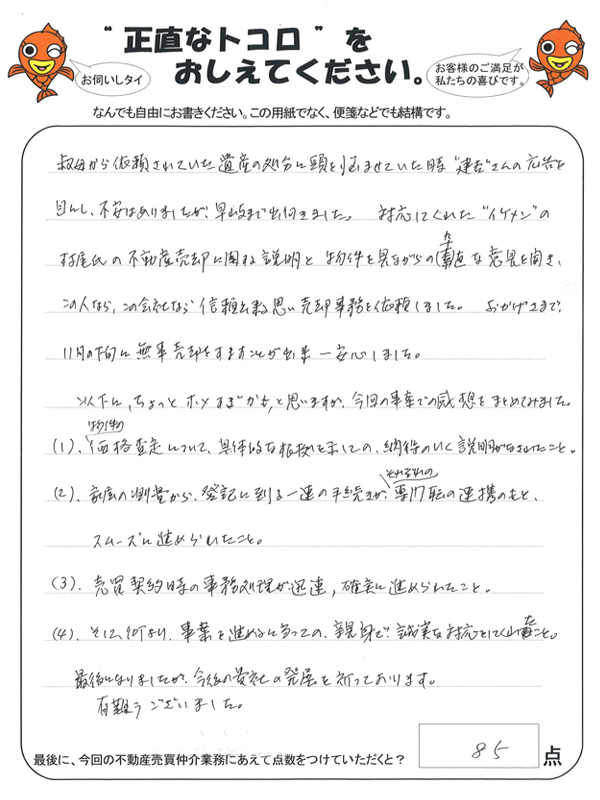 “正直なトコロ”を
おしえてください。
お伺いしタイ
お客様のご満足が
私たちの喜びです。
なんでも自由にお書きください。この用紙でなく、便箋などでも結構です。
叔母から依頼されていた遺産の処分に頭を悩ませていた時“建吉”さんの広告を
目にし、不安はありましたが、早岐まで出向きました。 対応してくれた“イケメン”の
村尾氏の不動産売却に関する説明と物件を見ながらの率直な意見を聞き、
この人なら、この会社なら信頼出来ると思い売却事務を依頼しました。 おかげさまで、
11月の下旬に無事売却をすますことが出来一安心しました。
以下に、ちょっとホメすぎかも、と思いますが、今回の事案での感想をまとめてみました。
(1). 物件の価格査定について、具体的な根拠を示しての、納得のいく説明がなされたこと。
(2). 家屋の測量から、登記に到る一連の手続きが、それぞれの専門職の連携のもと、
スムーズに進められたこと。
(3). 売買契約時の事務処理が迅速、確実に進められたこと。
(4). そして、何より、事案を進めるに当っての、親身で誠実な対応をしてくれたこと。
最後になりましたが、今後の貴社の発展を祈っております。
有難うございました。
最後に、今回の不動産売買仲介業務にあえて点数をつけていただくと?
85点